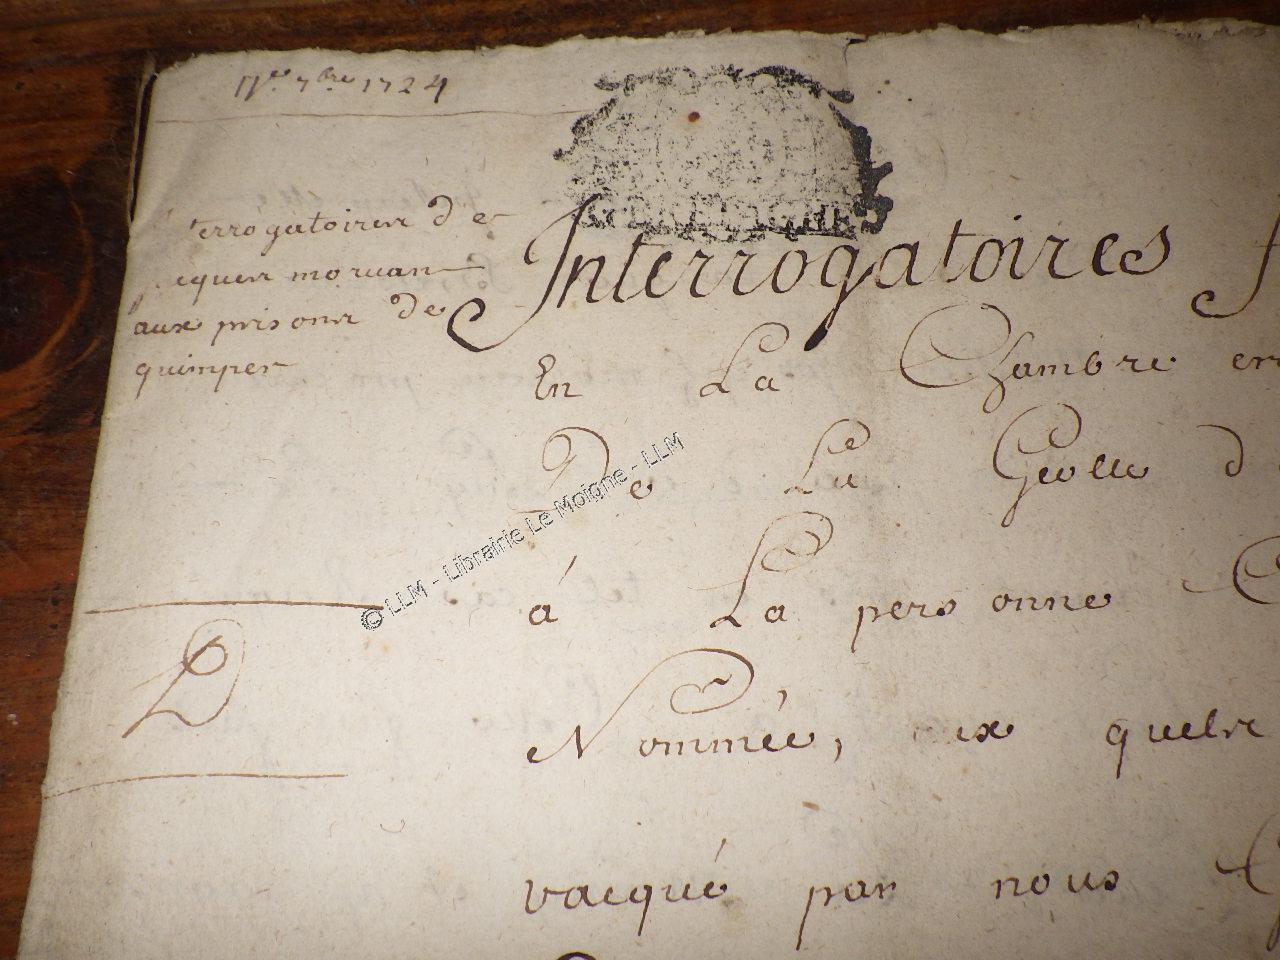 7bre 1724
terrogatoires de
jacques morvan
aux prisons de
quimper
Interrogatoires
En La Chambre
De La Geolle d
à La personne
Nommée, aux quels
vacqué par nous
D
© LLM - Librairie Le Moigne - LLM